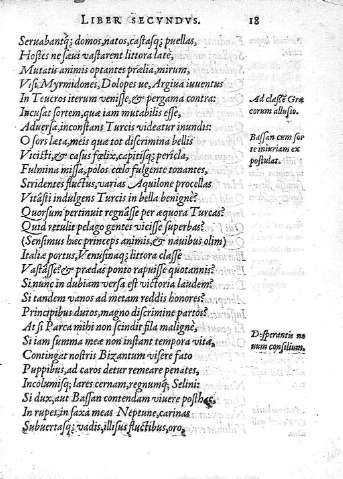 LIBER SECVNDVS. 18
Seruabantq; domos, natos, castasq; puellas,
Hostes ne sæui vastarent littora latè,
Mutatis animis optantes prælia, mirum,
Visi Myrmidones, Dolopes ue, Argiua iuuentus
In Teucros iterum venisse, & pergama contra:
Ad classē Græ
corum allusio.
Incusat sortem, quæ iam mutabilis esse,
Aduersa, inconstans Turcis videatur inundis:
O sors læta, meis quæ tot discrimina bellis
Bassan cum sor
te iniuriam ex
postulat.
Vicisti, & casus fœlix, capitisq; pericla,
Fulmina missa, polos cœlo fulgente tonantes,
Stridentes fluctus, varias Aquilone procellas
Vitasti indulgens Turcis in bella benignè?
Quorsum pertinuit regnasse per æquora Turcas?
Quid retulit pelago gentes vicisse superbas?
(Sensimus hæc princeps animis, & nauibus olim)
Italiæ portus, Venusinaq; littora classe
Vastasse? & prædas ponto rapuisse quotannis?
Si nunc in dubiam versa est victoria laudem?
Si tandem vanos ad metam reddis honores?
Principibus dutos, magno discrimine partos?
At si Parca mihi non scindit fila malignè,
Si iam summa meæ non instant tempora vitæ,
Desperantis no
num consilium.
Contingat nostris Bizantum visere fato
Puppibus, ad caros detur remeare penates,
Incolumisq; lares cernam, regnumq; Selini:
Si dux, aut Bassan contendam viuere posthac,
In rupes, in saxa meas Neptune, carinas
Subuertasq; vadis, illisus fluctibus, oro,